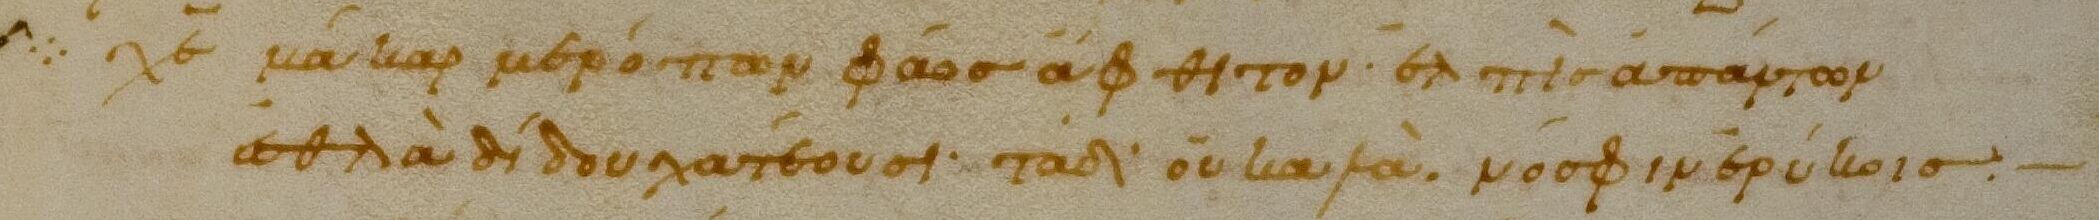 χε̅ μάκαρ μερόπων φάος ἄφθιτον· ἐλπὶς ἁπάντων
ἐσθλὰ δίδου χατέουσι· τὰδ' οὐ καλὰ. νόσφιν ἐρύκοις:—